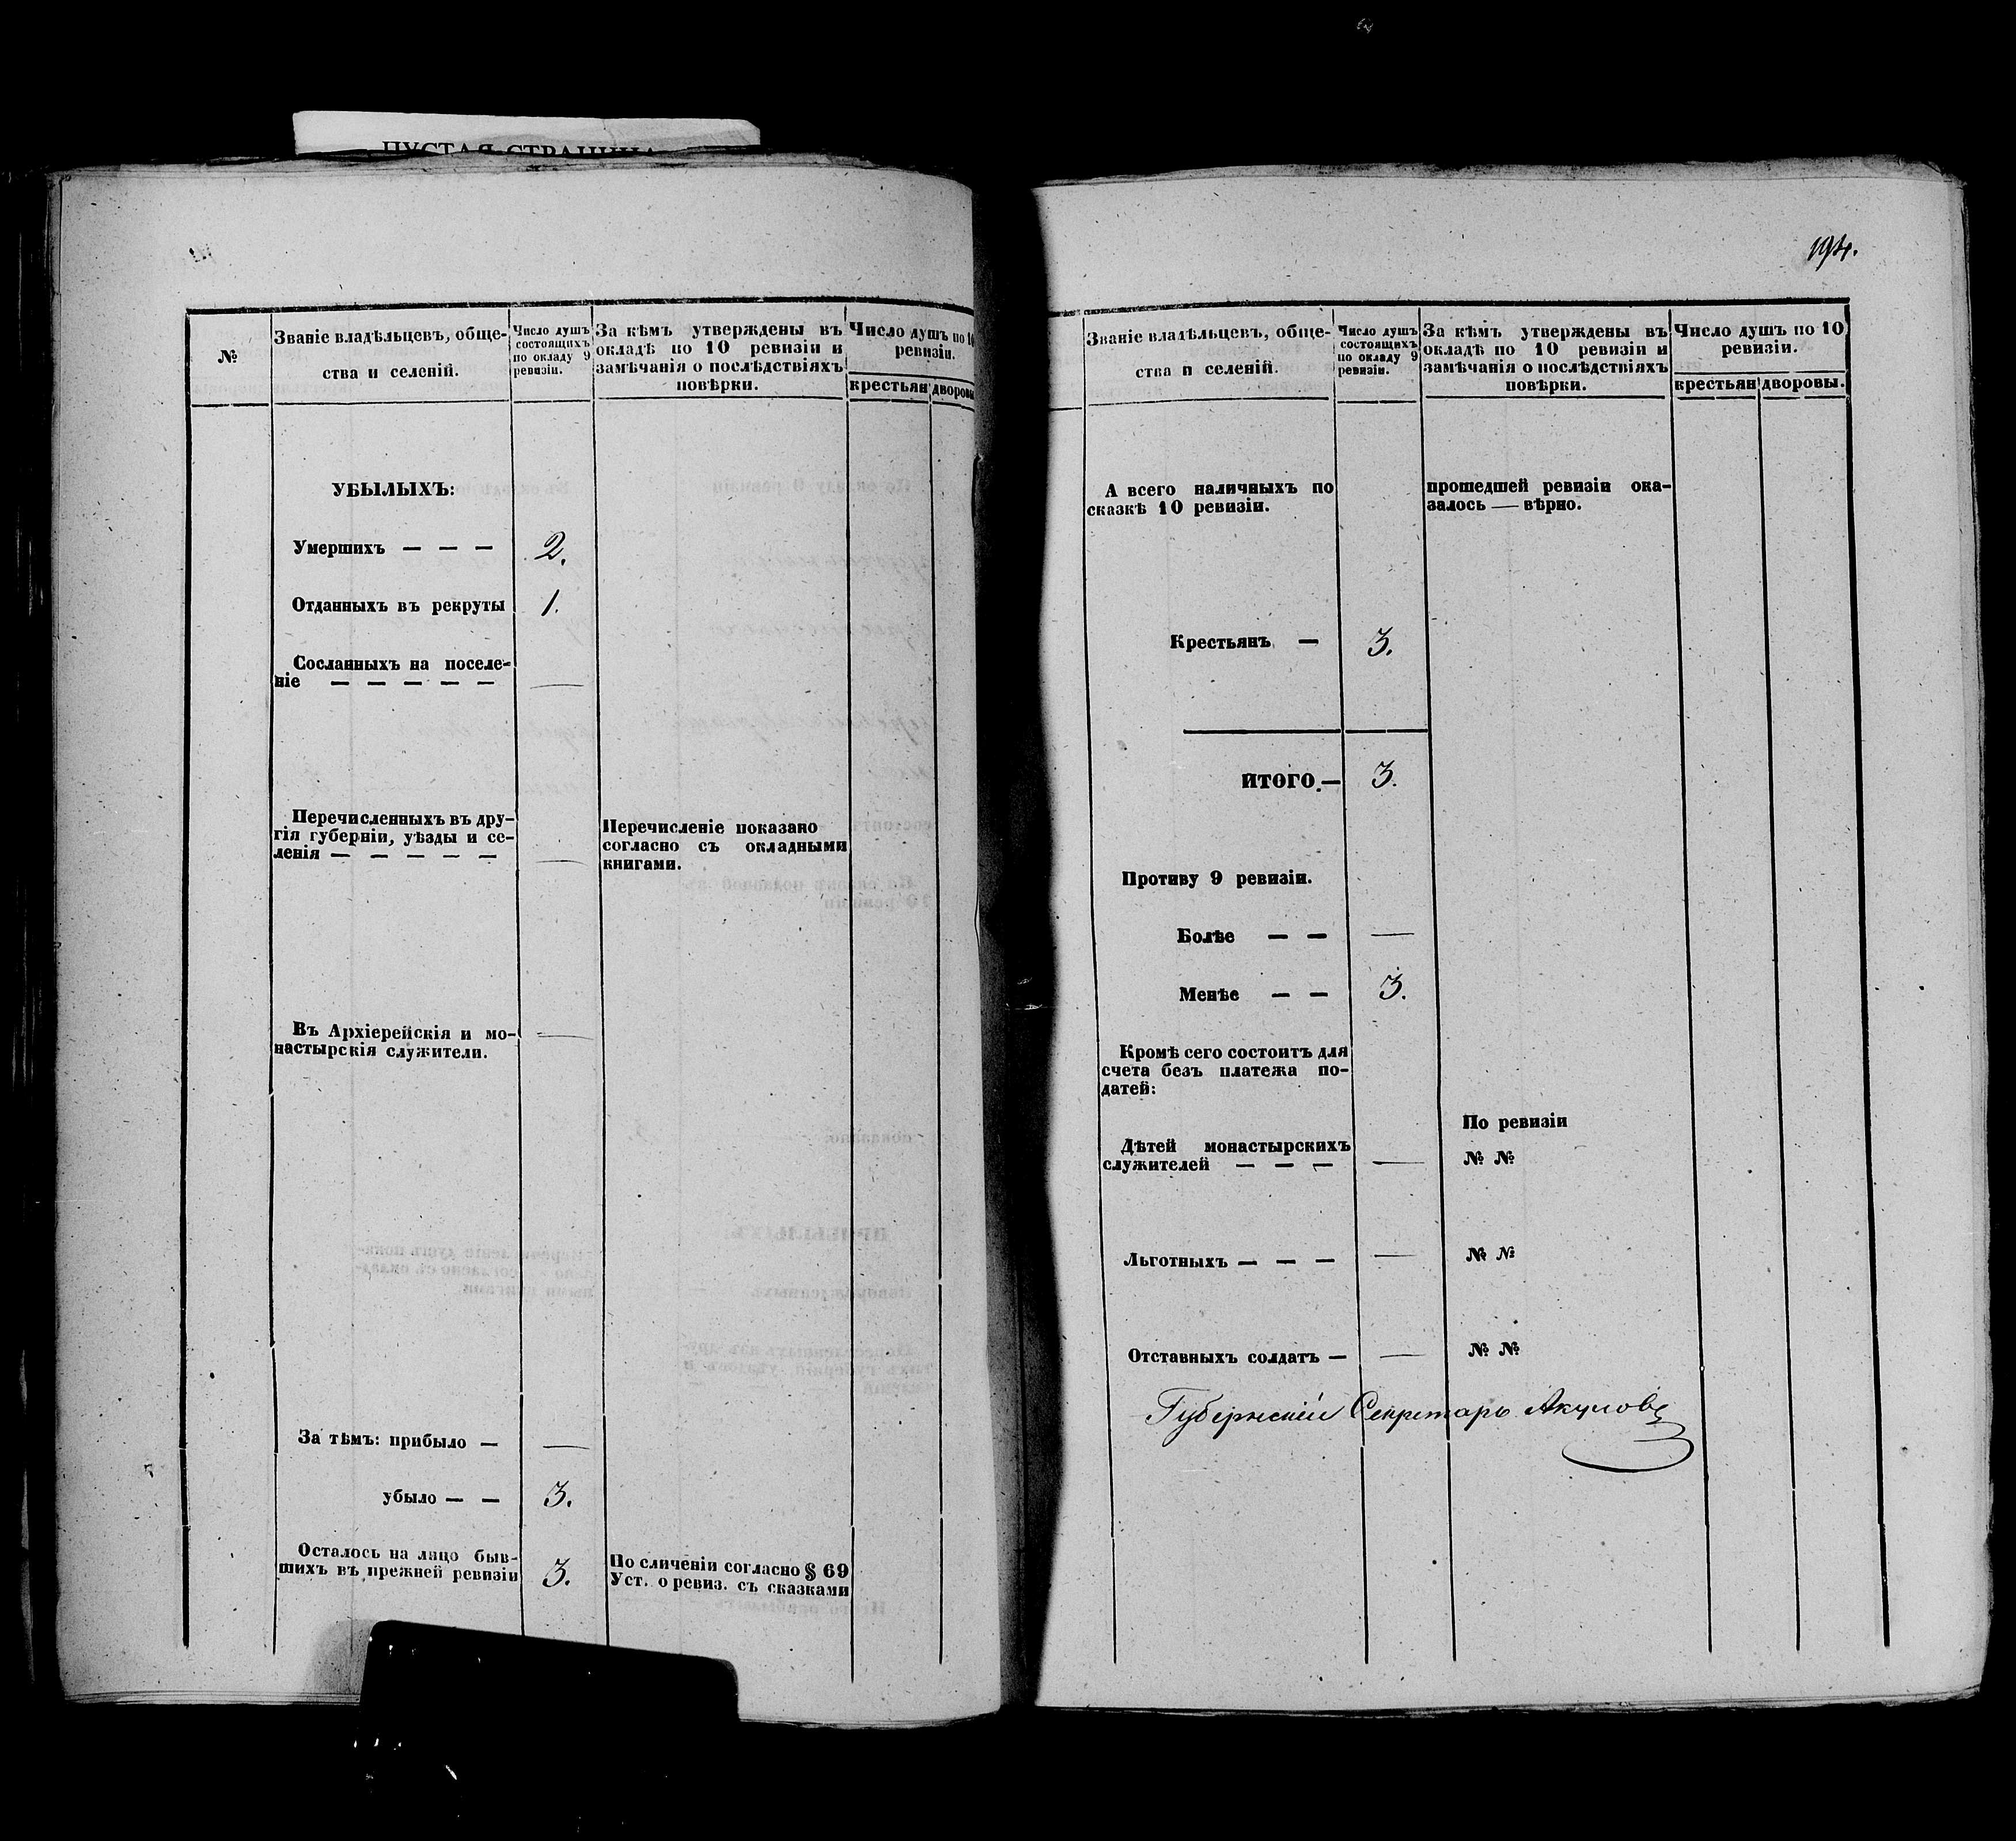 ПУСТАЯ СТРАНИЦА
№
Званіе владѣльцевъ, обще-
ства и селеній.
Число душъ
состоящихъ
по окладу 9
ревизіи.
За кѣмъ утверждены въ
окладѣ по 10 ревизіи и
замѣчанія о послѣдствіяхъ
повѣрки.
Число душъ по 10
ревизіи.
крестьян
дворовы
УБЫЛЫХЪ:
Умершихъ — — — 2.
Отданныхъ въ рекруты 1.
Сосланныхъ на поселе-
ніе — — — — — —
Перечисленныхъ въ дру-
гія губерніи, уѣзды и се-
ленія — — — — — —
Перечисленіе показано
согласно съ окладными
книгами.
Въ Архіерейскія и мо- —
настырскія служители.
За тѣмъ: прибыло — —
убыло — — 3.
Осталось на лицо быв-
шихъ въ прежней ревизіи 3.
По сличеніи согласно § 69
Уст. о ревиз. съ сказками
194.
Званіе владѣльцевъ, обще-
ства и селеній.
Число душъ
состоящихъ
по окладу 9
ревизіи.
За кѣмъ утверждены въ
окладѣ по 10 ревизіи и
замѣчанія о послѣдствіяхъ
повѣрки.
Число душъ по 10
ревизіи.
крестьян
дворовы.
А всего наличныхъ по
сказкѣ 10 ревизіи.
прошедшей ревизіи ока-
залось — вѣрно.
Крестьянъ — 3.
ИТОГО.— 3.
Противу 9 ревизіи.
Болѣе — — —
Менѣе — — 3.
Кромѣ сего состоитъ для
счета безъ платежа по-
датей:
По ревизіи
Дѣтей монастырскихъ
служителей — — — — № №
Льготныхъ — — — — № №
Отставныхъ солдатъ — — № №
Губернскій Секретарь Акуловъ